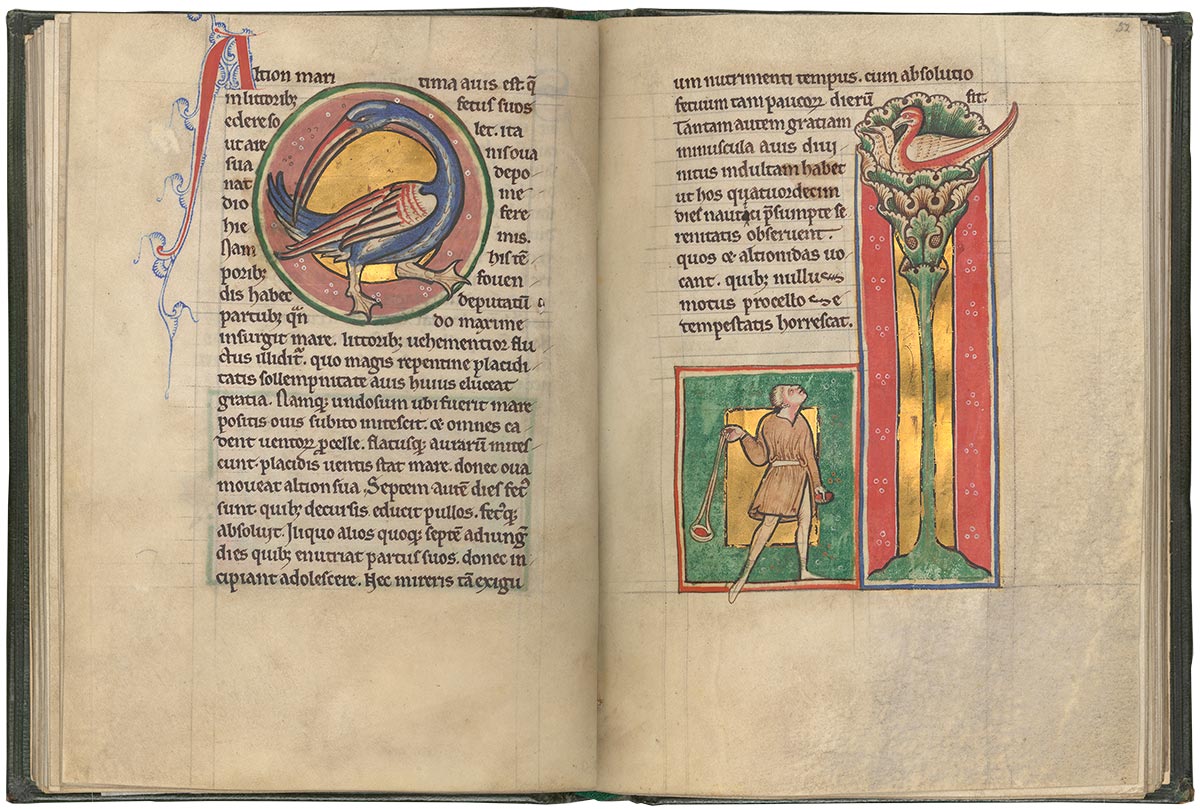 Altion mari tima auis est. q̃
in littorib; fetus suos
edere so let. ita
ut are nis oua
sua depo
nat me
dio fere
hie mis.
Nam his tē
porib; fouen
dis habet deputatū
partub; qn̄ do maxime
insurgit mare. littorib; uehementior flu
ctus illidit̃. quo magis repentine placidi
tatis sollempnitate auis huius eluceat
gratia. Namq; undosum ubi fuerit mare
positis ouis subito mitescit. ⁊ omnes ca
dent uentoꝝ ꝓcelle. flatusq; auraꝝ mites
cunt. placidis uentis stat mare. donec oua
moueat altion sua. Septem autē dies fetꝰ
sunt quib; decursis educit pullos. fetꝰq;
absoluit. Iliquo alios quoq; septē adiung̃
dies quib; enutriat partus suos. donec in
cipiant adolescere. Nec mireris tā exigu
52
um nutrimenti tempus. cum absolutio
fetuum tam paucoꝝ dierū sit.
Tantam autem gratiam
minuscula auis diui
nitus indultam habet
ut hos quatuordecim
dies nautici p̃sumpte se
renitatis obseruent.
quos ⁊ altionidas uo
cant. quib; nullus
motus procello se
tempestatis horrescat.